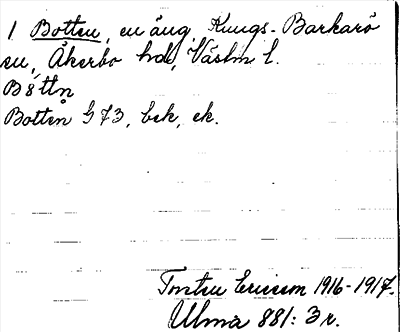 1 Botten, en äng, Kungs-Barkarö
sn, Åkerbo hd, Västm l.
Bottn
Botten G 73, bek, ek.
Torsten Ericsson 1916-1917.
Ulma 881: 3 r.